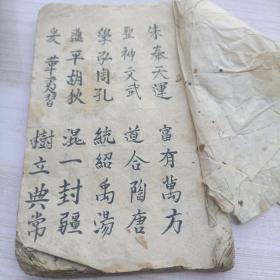 朱奉天運 富有萬方
聖神文武 道合陶唐
學弘周孔 統紹禹湯
平胡狄 混一封疆
樹立典常